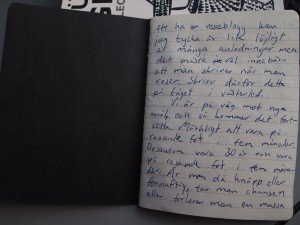 LEC
Att ha en reseblogg kan
jag tycka är lite löjligt
av många anledningar men
det måste väl innebära
att man skriver när man
reser. Skriver därför detta
på tåget i västerled.
Vi är på väg mot nya
och så kommer det fort-
sätta. Märkligt att vara på
resande fot i fem månader.
Dessutom vara 30 år och vara
på resande fot i fem måna-
der. Är man då knäpp eller
förnuftig, tar man chansen
eller förlorar man en massa